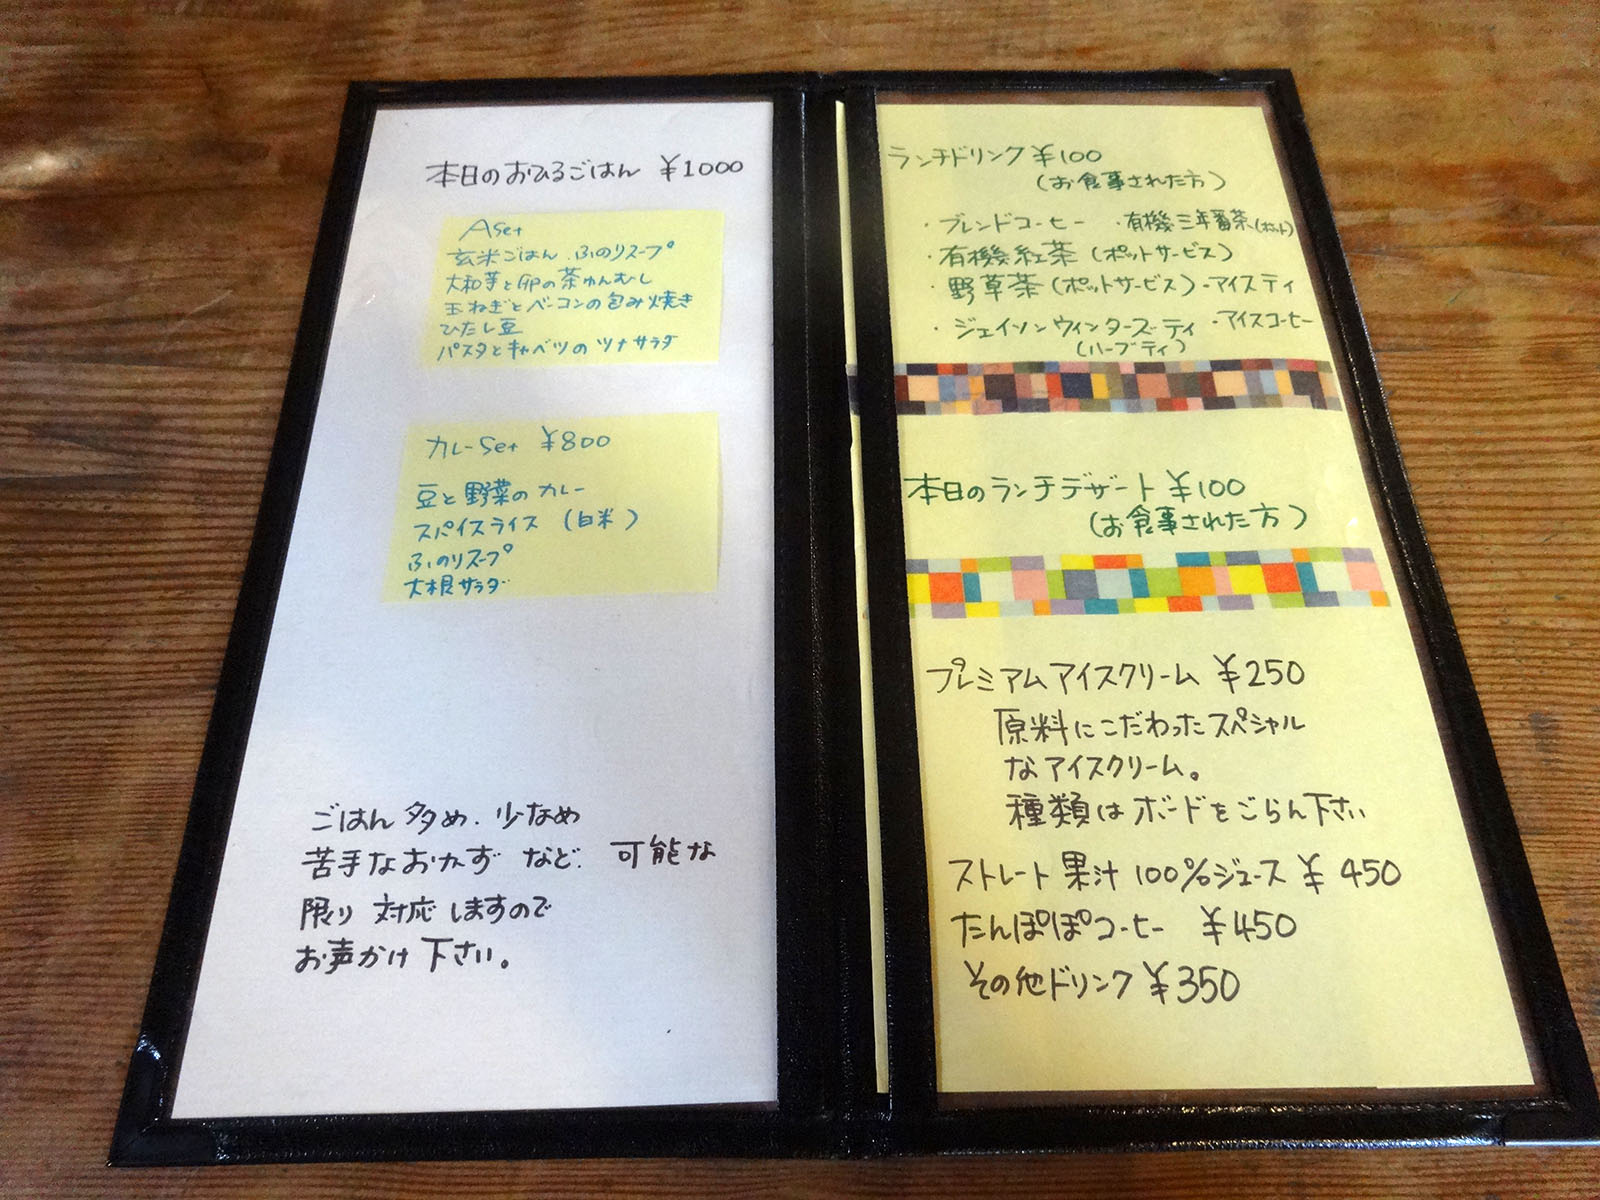 本日のおひるごはん ¥1000
Aset
玄米ごはん ふのりスープ
大和芋と卵の茶わんむし
玉ねぎとベーコンの包み焼き
ひたし豆
パスタとキャベツのツナサラダ
カレーSet ¥800
豆と野菜のカレー
スパイスライス (白米)
ふのりスープ
大根サラダ
ごはん多め、少なめ
苦手なおかずなど、可能な
限り対応しますので
お声かけ下さい。
ランチドリンク ¥100
(お食事された方)
・ブレンドコーヒー ・有機三年番茶(ポット)
・有機紅茶 (ポットサービス)
・野草茶 (ポットサービス) ・アイスティ
・ジェイソンウィンターズティ ・アイスコーヒー
(ハーブティ)
本日のランチデザート ¥100
(お食事された方)
プレミアムアイスクリーム ¥250
原料にこだわったスペシャル
なアイスクリーム。
種類はボードをごらん下さい
ストレート果汁100%ジュース ¥450
たんぽぽコーヒー ¥450
その他ドリンク ¥350